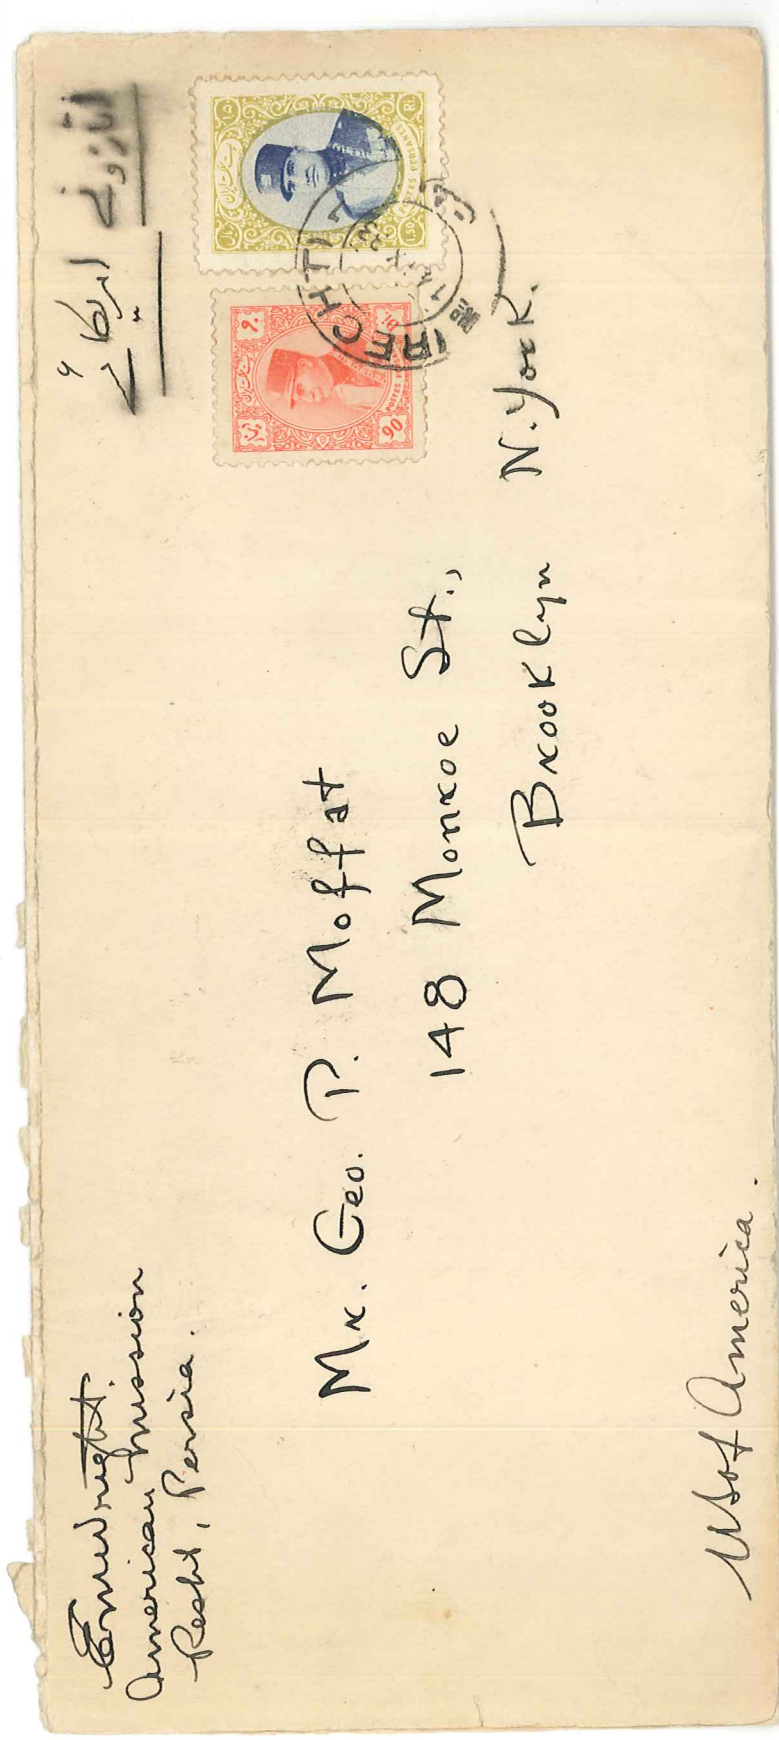 EMWright.
American Mission
Resht, Persia.
اتازونی
امریکائی
POSTES PERSANES
1.50
Ri.
90
Di.
POSTES
RECHT
Mr. Geo. P. Moffat
148 Monroe St.,
Brooklyn N. York.
US of America.